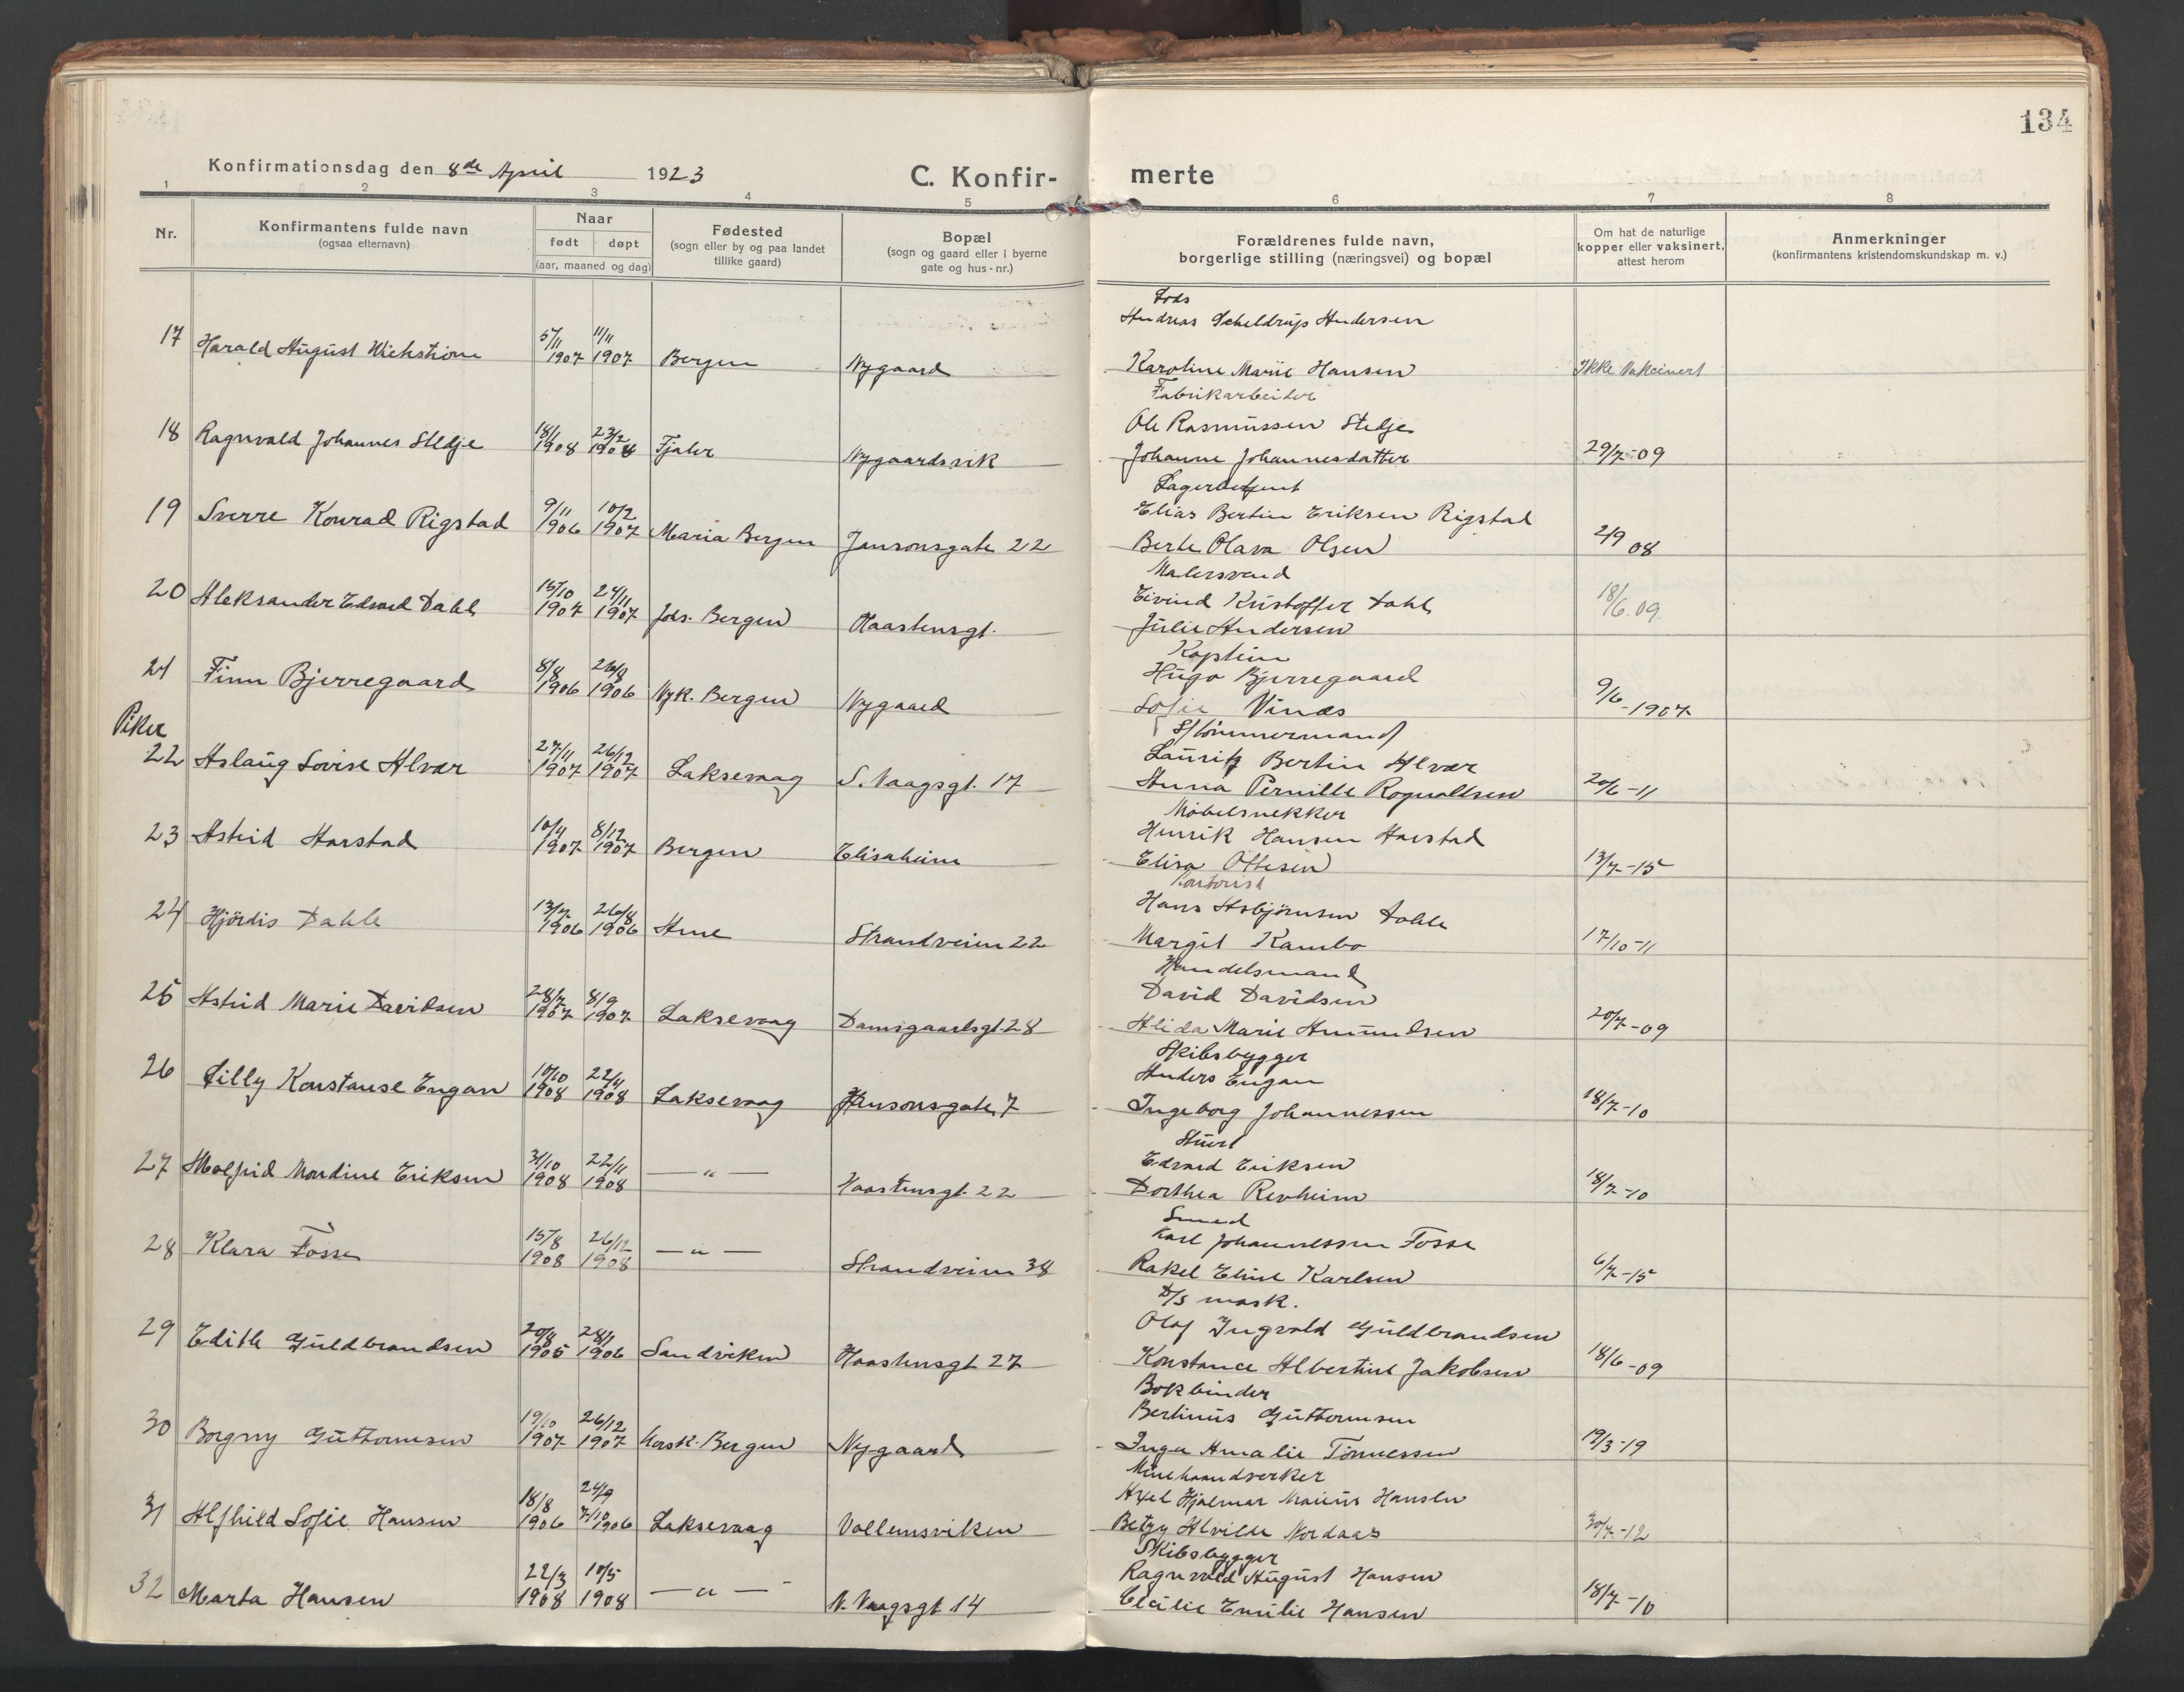 134
Konfirmationsdag den 8de April 1923
C. Konfir-
merte
1 2 3 4 5 6 7 8
Nr.
Konfirmantens fulde navn
(ogsaa efternavn)
Naar
født døpt
(aar, maaned og dag)
Fødested
(sogn eller by og paa landet
tillike gaard)
Bopæl
(sogn og gaard eller i byerne
gate og hus-nr.)
Forældrenes fulde navn,
borgerlige stilling (næringsvei) og bopæl
Om hat de naturlige
kopper eller vaksinert,
attest herom
Anmerkninger
(konfirmantens kristendomskundskap m. v.)
Lods
Andreas Scheldrup Andersen
17 Harald August Wickstrøm 5/11 1907 11/11 1907 Bergen Nygaard Karoline Marie Hansen Ikke Vakcinert
Fabrikarbeider
Ole Rasmussen Stedje
18 Ragnvald Johannes Stedje 18/1 1908 23/2 1908 Fjaler Nygaardsvik Johanne Johannesdatter 29/7-09
Lagerbetjent
Elias Bertin Eriksen Rigstad
19 Sverre Konrad Rigstad 9/11 1906 10/2 1907 Maria Bergen Jansonsgate 22 Berte Olava Olsen 2/9 08
Malersvend
Eivind Kristoffer Dahl
20 Aleksander Edvard Dahl 15/10 1907 24/11 1907 Johs. Bergen Haastensgt. Julie Andersen 18/6.09
Kaptein
Hugo Bjerregaard
21 Finn Bjerregaard 8/8 1906 26/8 1906 Nyk. Bergen Nygaard Sofie Vinæs 9/6-1907
Piker
Tømmermand
Lauritz Bertin Alvær
22 Aslaug Lovise Alvær 27/11 1907 26/12 1907 Laksevaag S. Vaagsgt. 17 Anna Pernille Rognaldsen 20/6-11
Møbelsnekker
Henrik Hansen Harstad
23 Astrid Harstad 10/4 1907 8/12 1907 Bergen Elisaheim Elisa Ottesen 13/7-15
Kontorist
Hans Asbjørnsen Dahle
24 Hjördis Dahle 13/7 1906 26/8 1906 Arne Strandveien 22 Margit Kambo 17/10-11
Handelsmand
David Davidsen
25 Astrid Marie Davidsen 28/7 1907 8/9 1907 Laksevaag Damsgaardsgt. 28 Alida Marie Amundsen 20/7-09
Skibsbygger
Anders Engan
26 Lilly Konstanse Engan 10/10 1908 22/11 1908 Laksevaag Jansonsgate 7 Ingeborg Johannessen 18/7-10
Stuert
Edvard Eriksen
27 Molfrid Mondine Eriksen 31/10 1908 22/11 1908 — " — Haastensgt. 22 Dorthea Revheim 18/7-10
Smed
Karl Johannessen Fosse
28 Klara Fosse 15/8 1908 26/12 1908 — " — Strandveien 38 Rakel Eline Karlsen 6/7-15
D/S mask.
Olaf Ingvald Guldbrandsen
29 Edith Guldbrandsen 20/8 1905 28/1 1906 Sandviken Haastensgt 27 Konstance Albertine Jakobsen 18/6-09
Bokbinder
Bertinus Guttormsen
30 Borgny Guttormsen 19/10 1907 26/12 1907 Korsk. Bergen Nygaard Inga Amalie Tønnessen 19/3-19
Minehaandverker
Axel Hjalmar Marius Hansen
31 Alfhild Sofie Hansen 18/8 1906 24/9 7/10 1906 Laksevaag Vallemsviken Betzy Alvilde Nordaas 30/7-12
Skibsbygger
Ragnvald August Hansen
32 Marta Hansen 22/3 1908 10/5 1908 — " — N. Vaagsgt 14 Cecilie Emilie Hansen 18/7-10